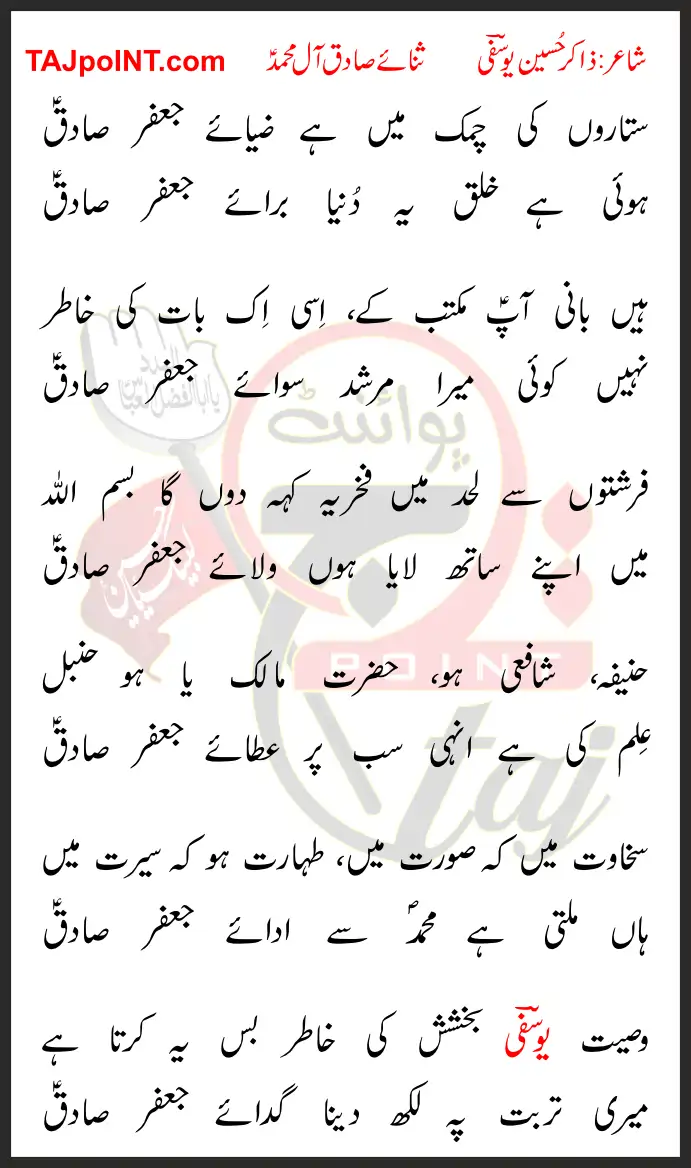 شاعر: ذاکر حُسین یوسفیؔ ثنائے صادق آل محمدؐ TAJpoINT.com
ستاروں کی چمک میں ہے ضیائے جعفر صادقؑ
ہوئی ہے خلق یہ دُنیا برائے جعفر صادقؑ
ہیں بانی آپؑ مکتب کے، اِسی اِک بات کی خاطر
نہیں کوئی میرا مرشد سوائے جعفر صادقؑ
فرشتوں سے لحد میں فخریہ کہہ دوں گا بسم اللہ
میں اپنے ساتھ لایا ہوں ولائے جعفر صادقؑ
حنیفہ، شافعی ہو، حضرت مالک یا ہو حنبل
عِلم کی ہے انہی سب پر عطائے جعفر صادقؑ
سخاوت میں کہ صورت میں، طہارت ہو کہ سیرت میں
ہاں ملتی ہے محمدؐ سے ادائے جعفر صادقؑ
وصیت یوسفیؔ بخشش کی خاطر بس یہ کرتا ہے
میری تربت پہ لکھ دینا گدائے جعفر صادقؑ
پوائنٹ
تاج
لبیک یا حسین
POINT
taj